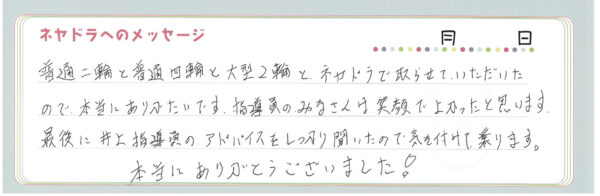 ネヤドラへのメッセージ
月 日
普通二輪と普通四輪と大型2輪と、ネヤドラで取らせていただいた
ので、本当にありがたいです。指導員のみなさんは笑顔でよかったと思います。
最後に井上指導員のアドバイスをしっかり聞いたので気を付けて乗ります。
本当にありがとうございました!